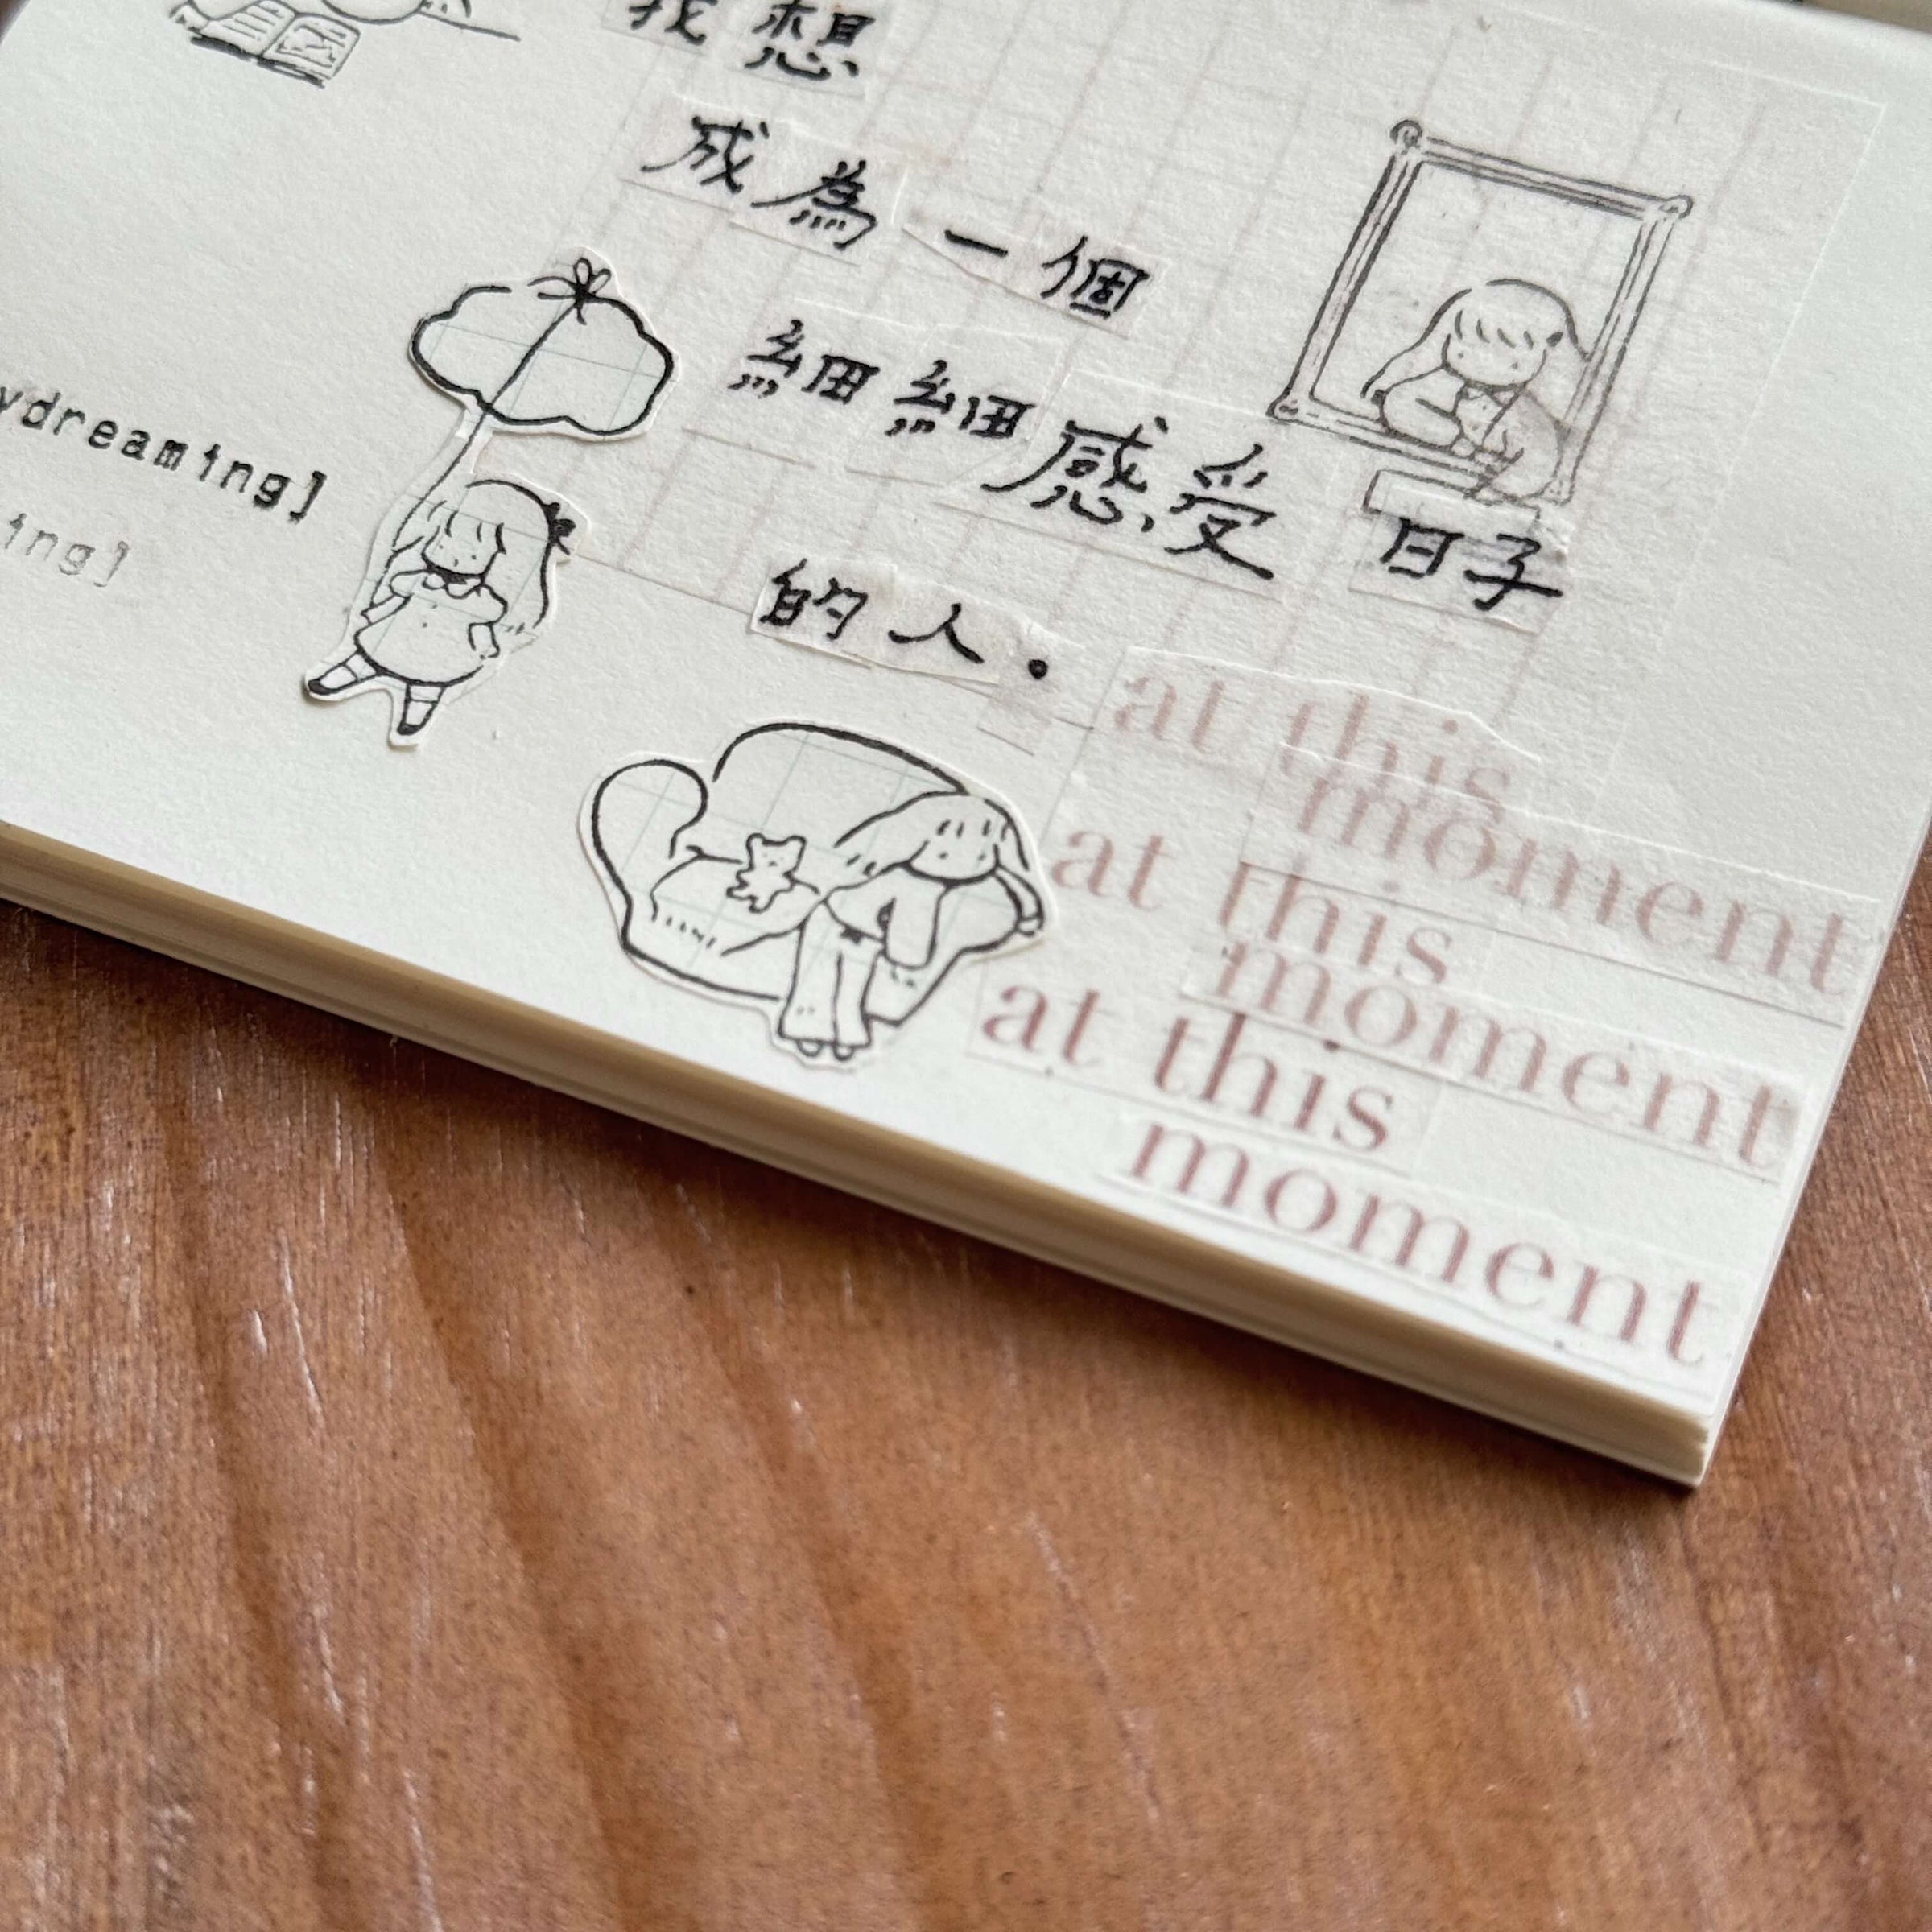 我想
成為一個
細細感受日子
的人.
ydreaming]
ing]
at this
moment
at this
moment
at this
moment